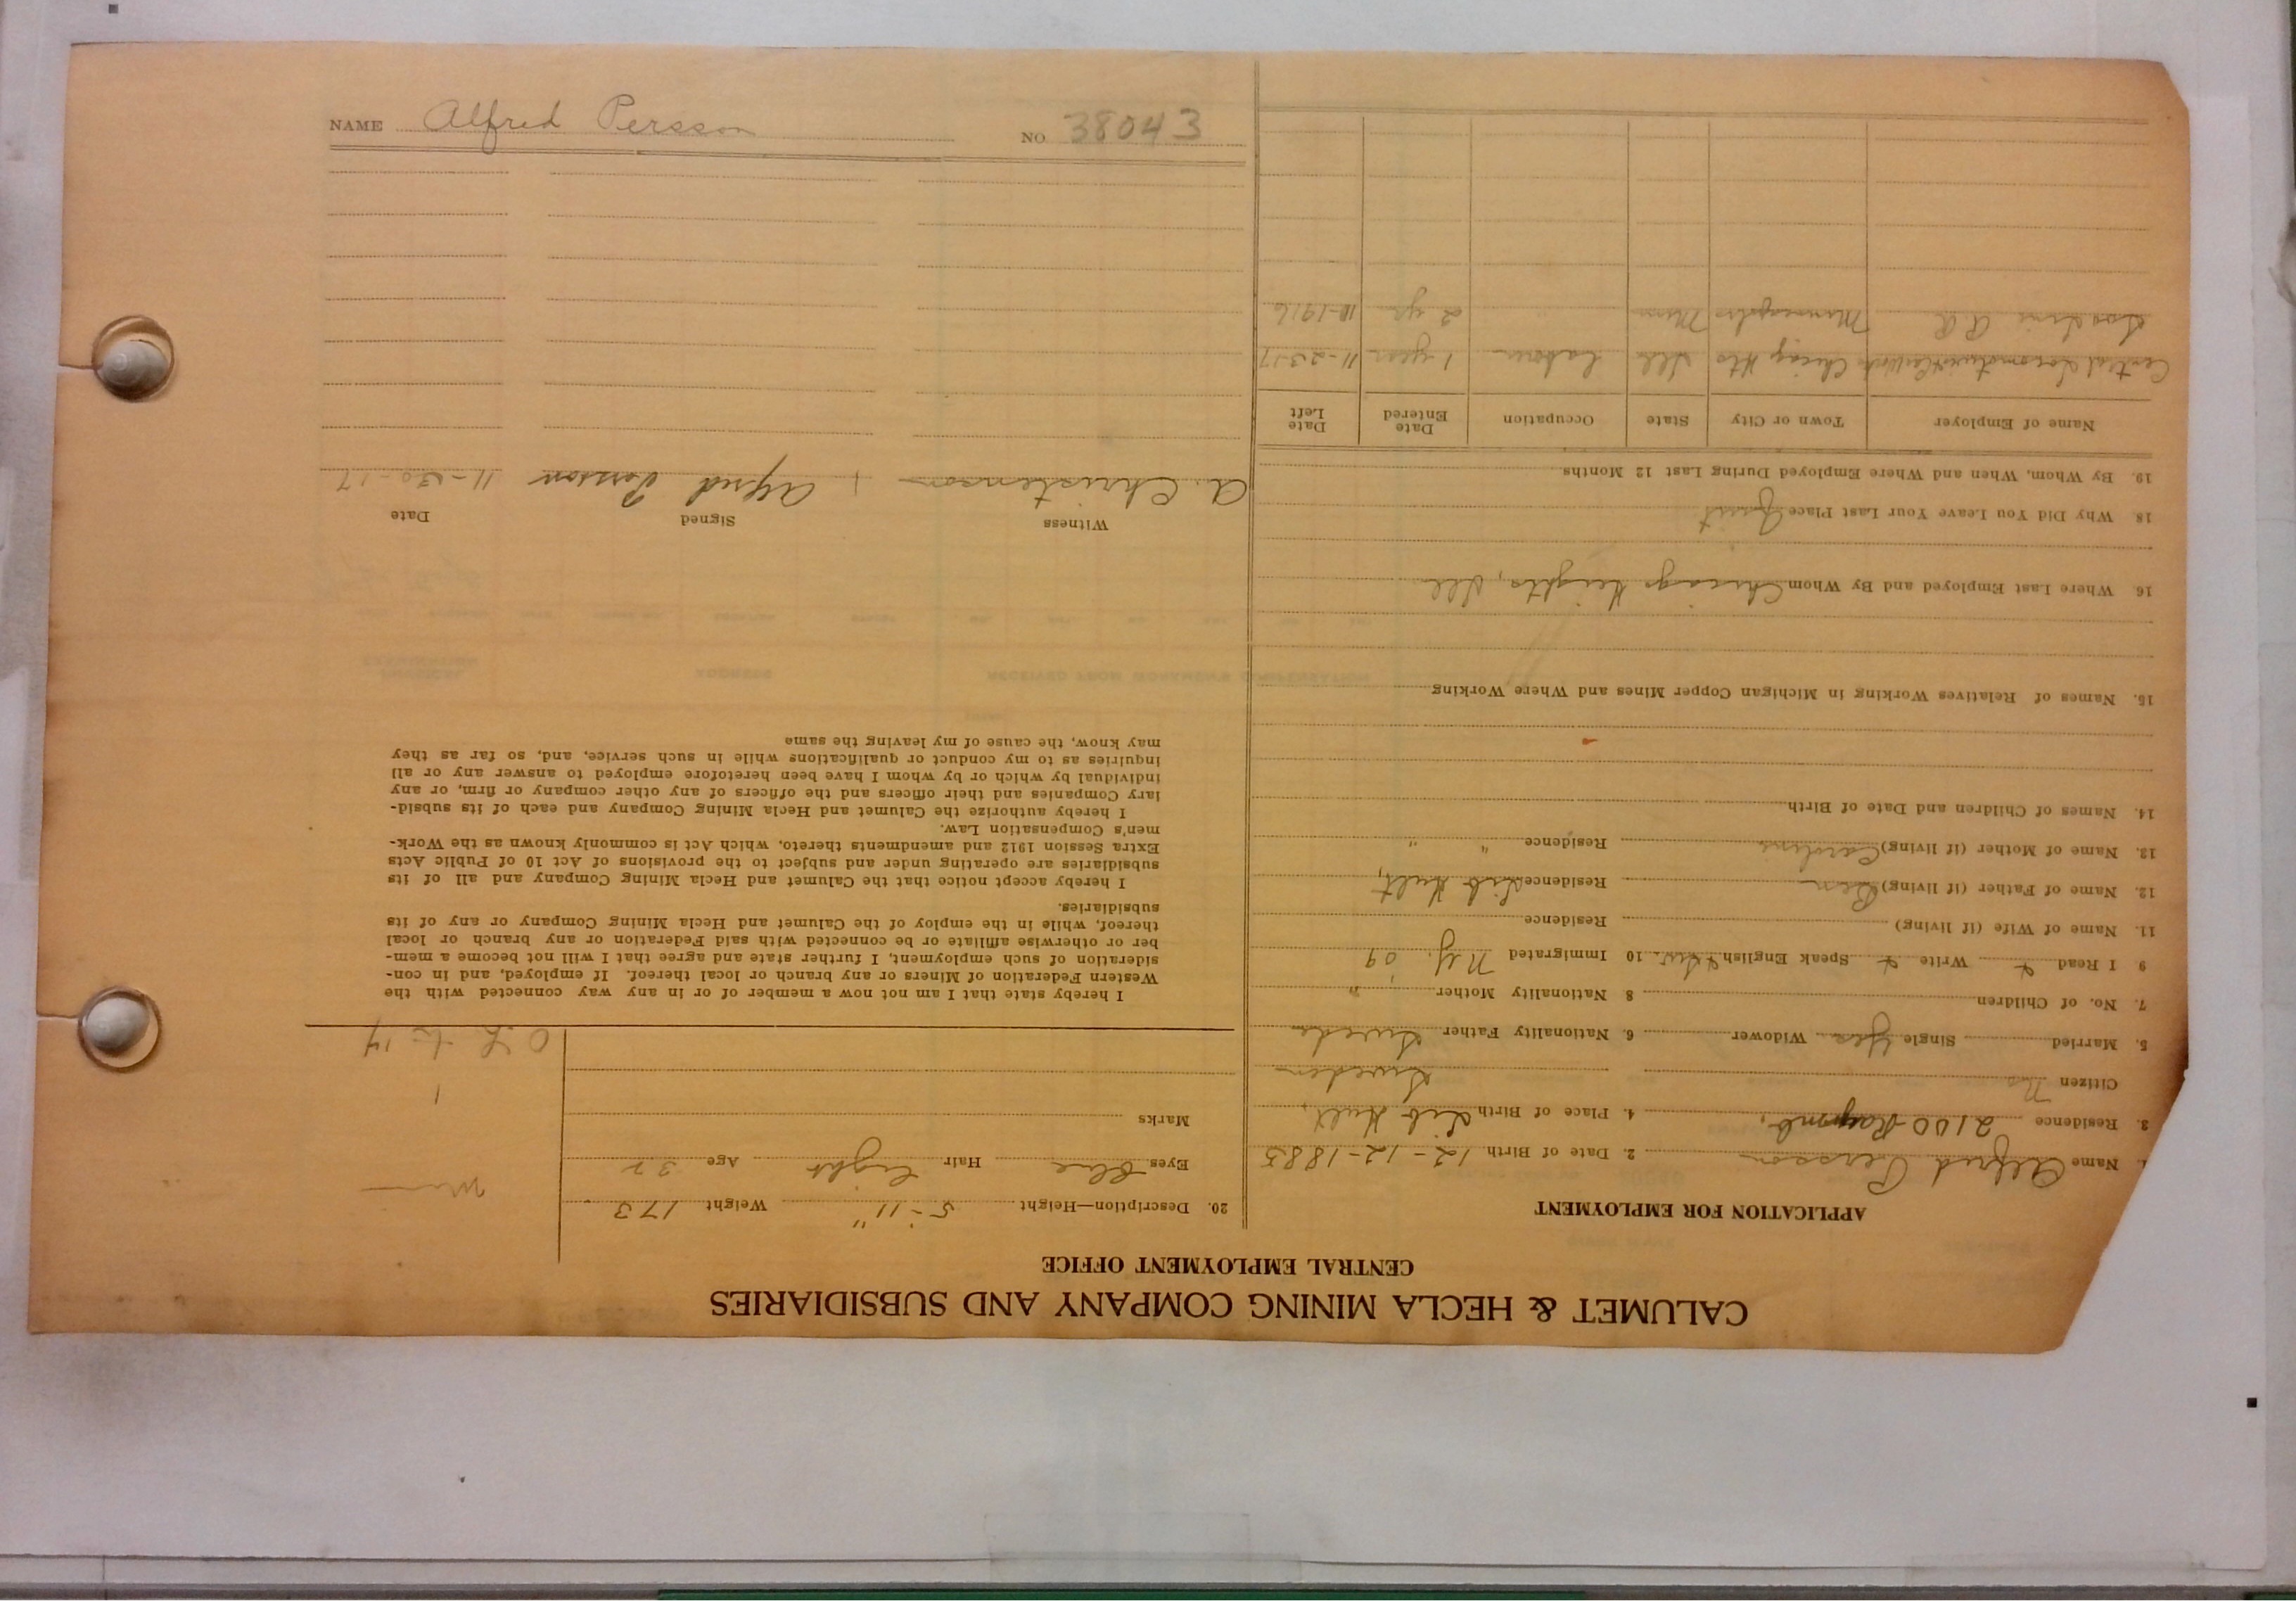 CALUMET & HECLA MINING COMPANY AND SUBSIDIARIES
CENTRAL EMPLOYMENT OFFICE
APPLICATION FOR EMPLOYMENT
1. Name Alfred Persson 2. Date of Birth 12-12-1885
3. Residence 2100 4. Place of Birth
Citizen No Sweden
5. Married Single Yes Widower 6. Nationality Father Swede
7. No. of Children 8 Nationality Mother " "
9 I Read Write Speak English 10 Immigrated N.Y. 09
11. Name of Wife (if living) Residence
12. Name of Father (if living) Residence
13. Name of Mother (if living) Residence " "
14. Names of Children and Date of Birth
15. Names of Relatives Working in Michigan Copper Mines and Where Working
16. Where Last Employed and By Whom Chicago Heights, Ill
18. Why Did You Leave Your Last Place Quit
19. By Whom, When and Where Employed During Last 12 Months
Name of Employer Town or City State Occupation Date Entered Date Left
Central Locomotive Chicag Hts Ill Labour 1 year 11-23-17
Soo Line RR Minneapolis Minn " 2 yr 10-1916
20. Description—Height 5-11" Weight 173
Eyes Blue Hair Light Age 32
Marks
I hereby state that I am not now a member of or in any way connected with the
Western Federation of Miners or any branch or local thereof. If employed, and in con-
sideration of such employment, I further state and agree that I will not become a mem-
ber or otherwise affiliate or be connected with said Federation or any branch or local
thereof, while in the employ of the Calumet and Hecla Mining Company or any of its
subsidiaries.
I hereby accept notice that the Calumet and Hecla Mining Company and all of its
subsidiaries are operating under and subject to the provisions of Act 10 of Public Acts
Extra Session 1912 and amendments thereto, which Act is commonly known as the Work-
men's Compensation Law.
I hereby authorize the Calumet and Hecla Mining Company and each of its subsid-
iary Companies and their officers and the officers of any other company or firm, or any
individual by which or by whom I have been heretofore employed to answer any or all
inquiries as to my conduct or qualifications while in such service, and, so far as they
may know, the cause of my leaving the same
Witness Signed Date
A. Christenson Alfred Persson 11-30-17
NAME Alfred Persson NO 38043